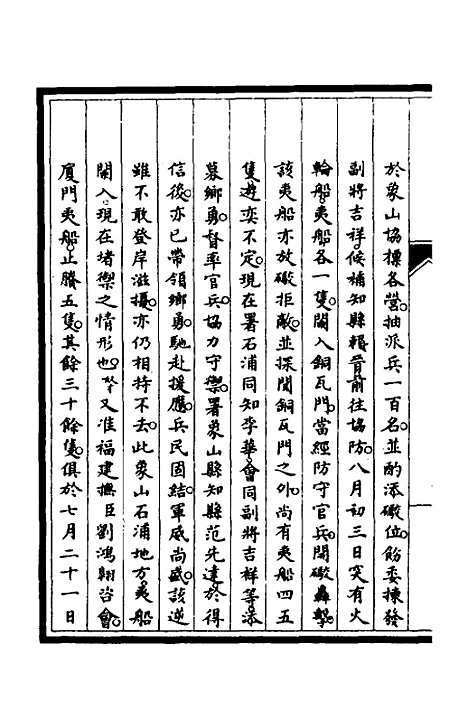 於象山協標各營抽派兵一百名並酌添礮位飭委揀發
副將吉祥候補知縣賴晉前往協防八月初三日突有火
輪船夷船各一隻闖入銅瓦門當經防守官兵開礮轟擊
該夷船亦放礮拒敵並探聞銅瓦門之外尚有夷船四五
隻遊奕不定現在署石浦同知李華會同副將吉祥等添
募鄉勇督率官兵協力守禦署象山縣知縣范先達於得
信後亦已帶領鄉勇馳赴援應兵民固結軍威尚盛該逆
雖不敢登岸滋擾亦仍相持不去此象山石浦地方夷船
闖入現在堵禦之情形也又准福建撫臣劉鴻翱咨會
廈門夷船止賸五隻其餘三十餘隻俱於七月二十一日